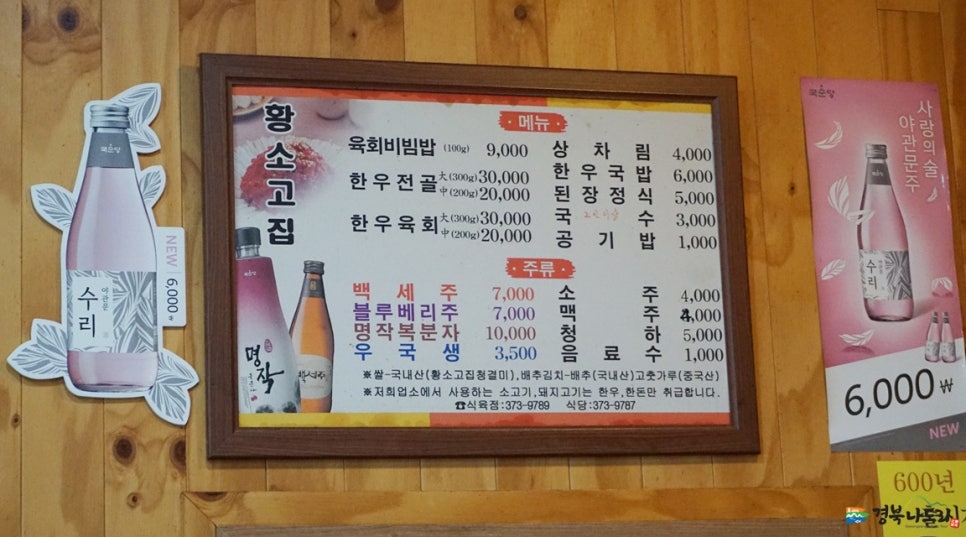 국순당
NEW 6,000원
야관문
수리
황소고집
메뉴
육회비빔밥 (100g) 9,000
한우전골 大(300g) 30,000
中(200g) 20,000
한우육회 大(300g) 30,000
中(200g) 20,000
상차림 4,000
한우국밥 6,000
된장정식 5,000
국수 3,000
공기밥 1,000
주류
백세주 7,000
블루베리주 7,000
명작복분자 10,000
우국생 3,500
소주 4,000
맥주 4,000
청하 5,000
음료수 1,000
명작
※쌀-국내산(황소고집청결미),배추김치-배추(국내산)고춧가루(중국산)
※저희업소에서 사용하는 소고기,돼지고기는 한우,한돈만 취급합니다.
☎식육점:373-9789 식당:373-9787
국순당
사랑의 술
야관문주
야관문
수리
6,000 ₩
NEW
600년
경북나드리